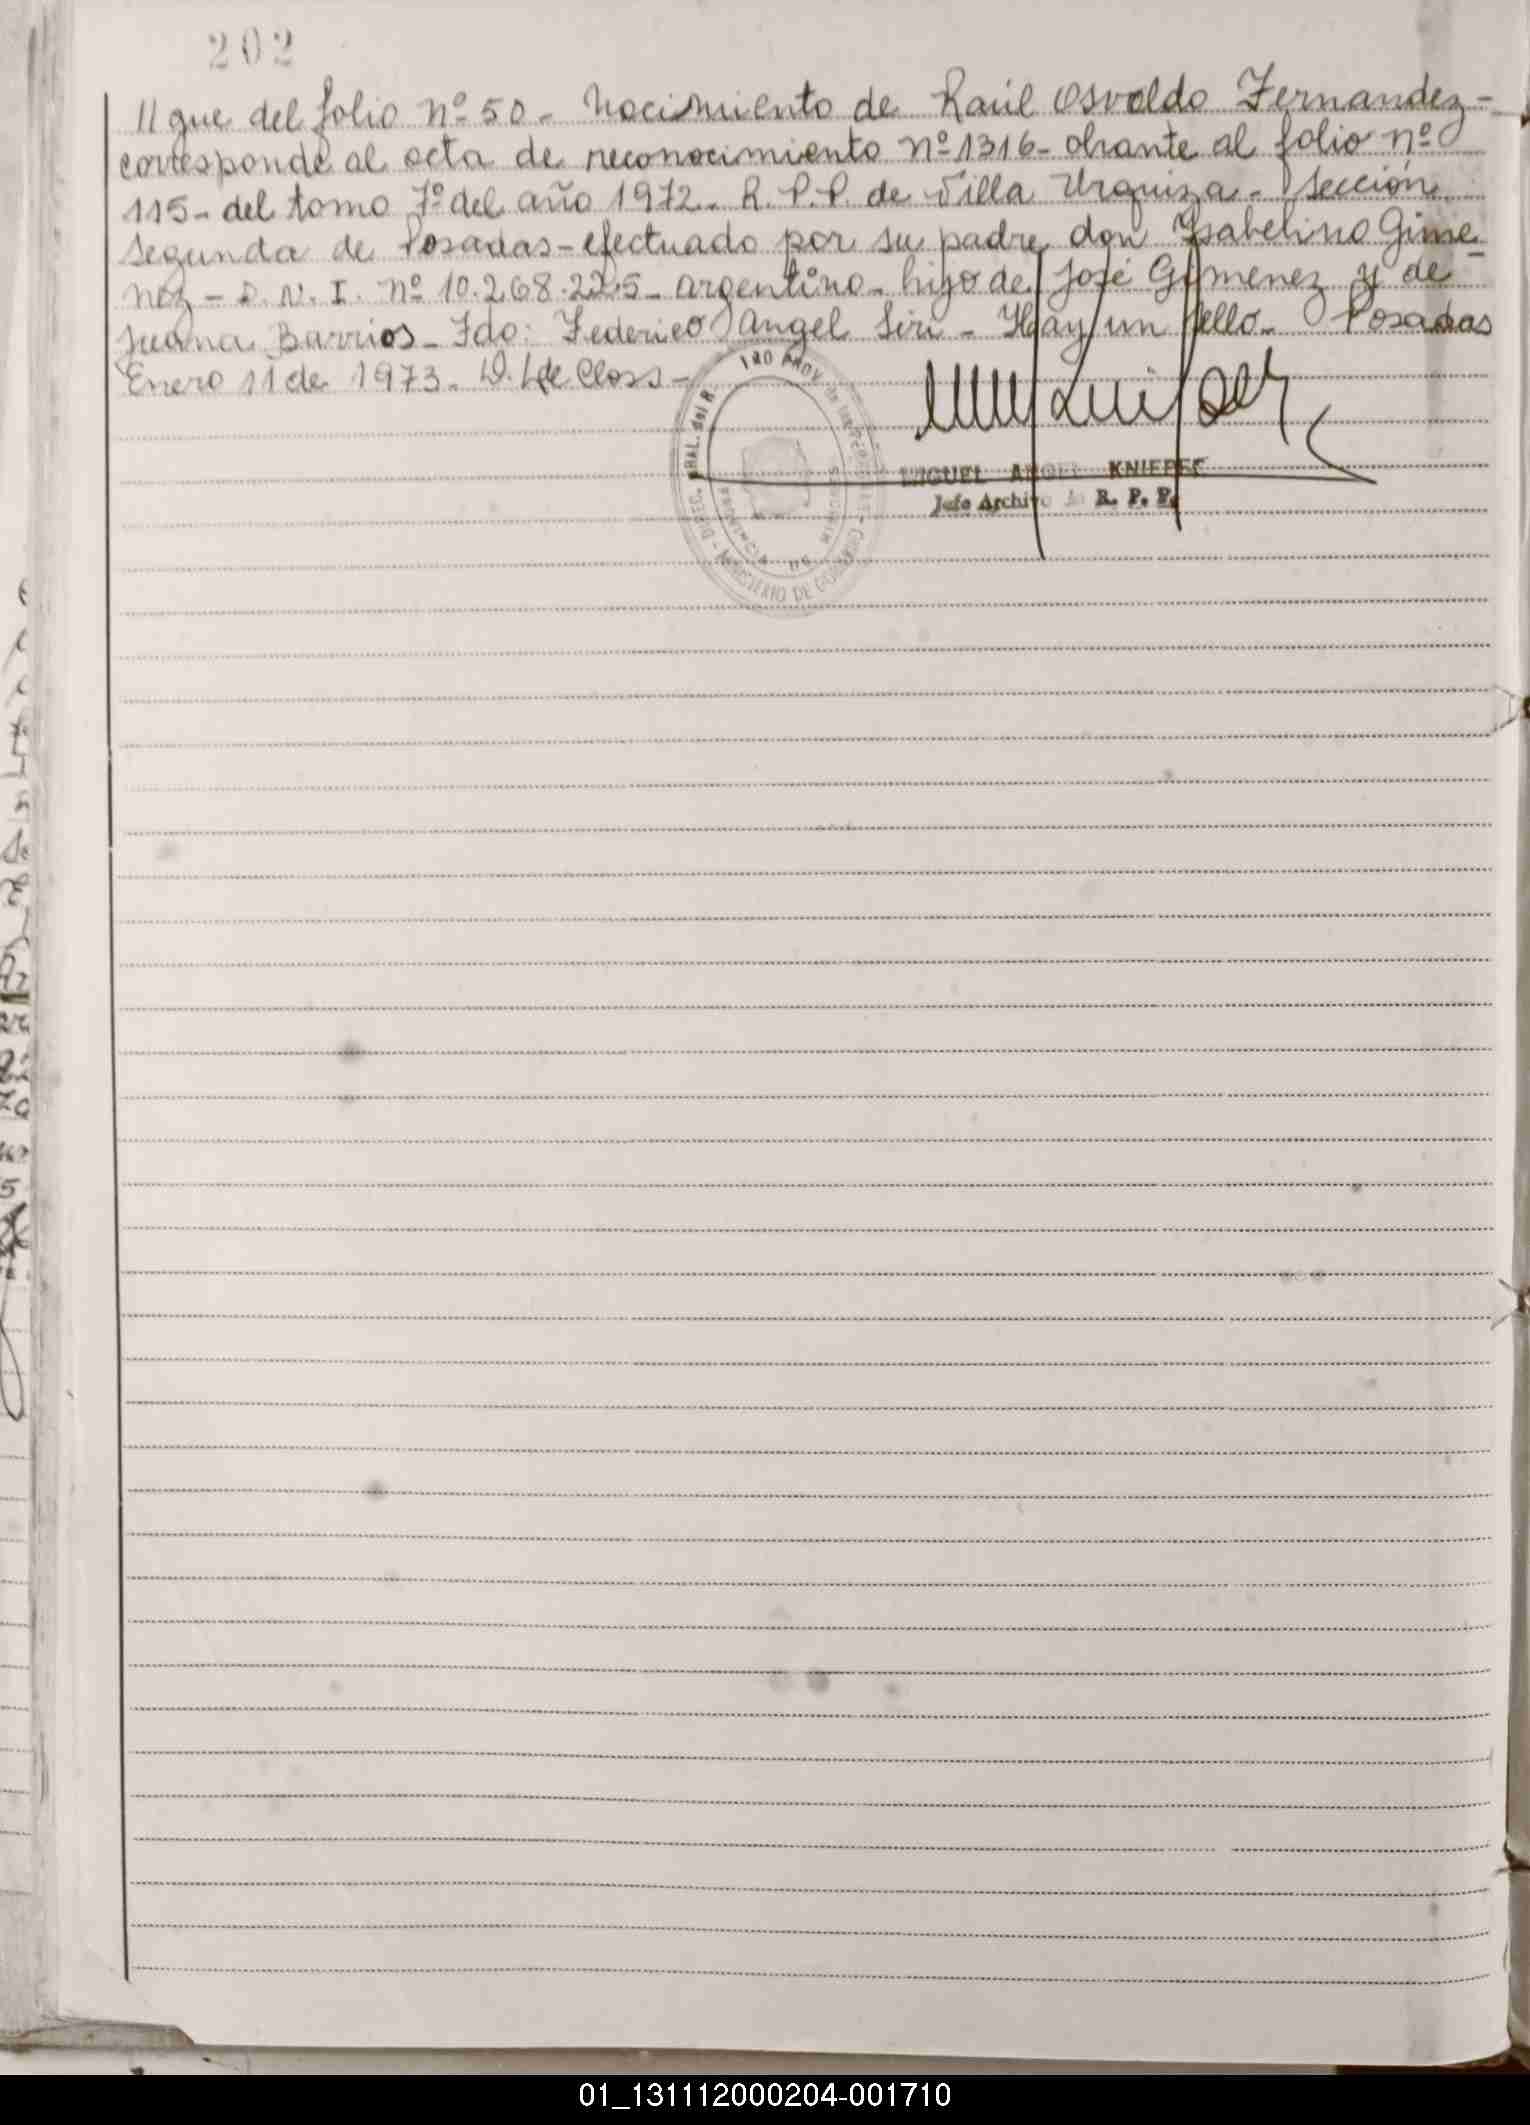 202
//gue del folio Nº 50 - Nacimiento de Raúl Osvaldo Fernandez -
corresponde al acta de reconocimiento nº 1316 - obrante al folio nº
115 - del tomo 7º del año 1972. R. P. P. de Villa Urquiza - Sección
segunda de Posadas - efectuado por su padre don Ysabelino Gime-
nez - D. N. I. nº 10.268.225 - argentino - hijo de José Gimenez y de
Juana Barrios - Fdo: Federico Angel Siri - Hay un sello - Posadas
Enero 11 de 1973. D. L de Closs -
MIGUEL ANGEL KNIEPEC
Jefe Archivo R. P. P.
DIREC. GRAL. del R. PROV. de las
MINISTERIO DE GOBIERNO
PROVINCIA DE MISIONES
01_131112000204-001710